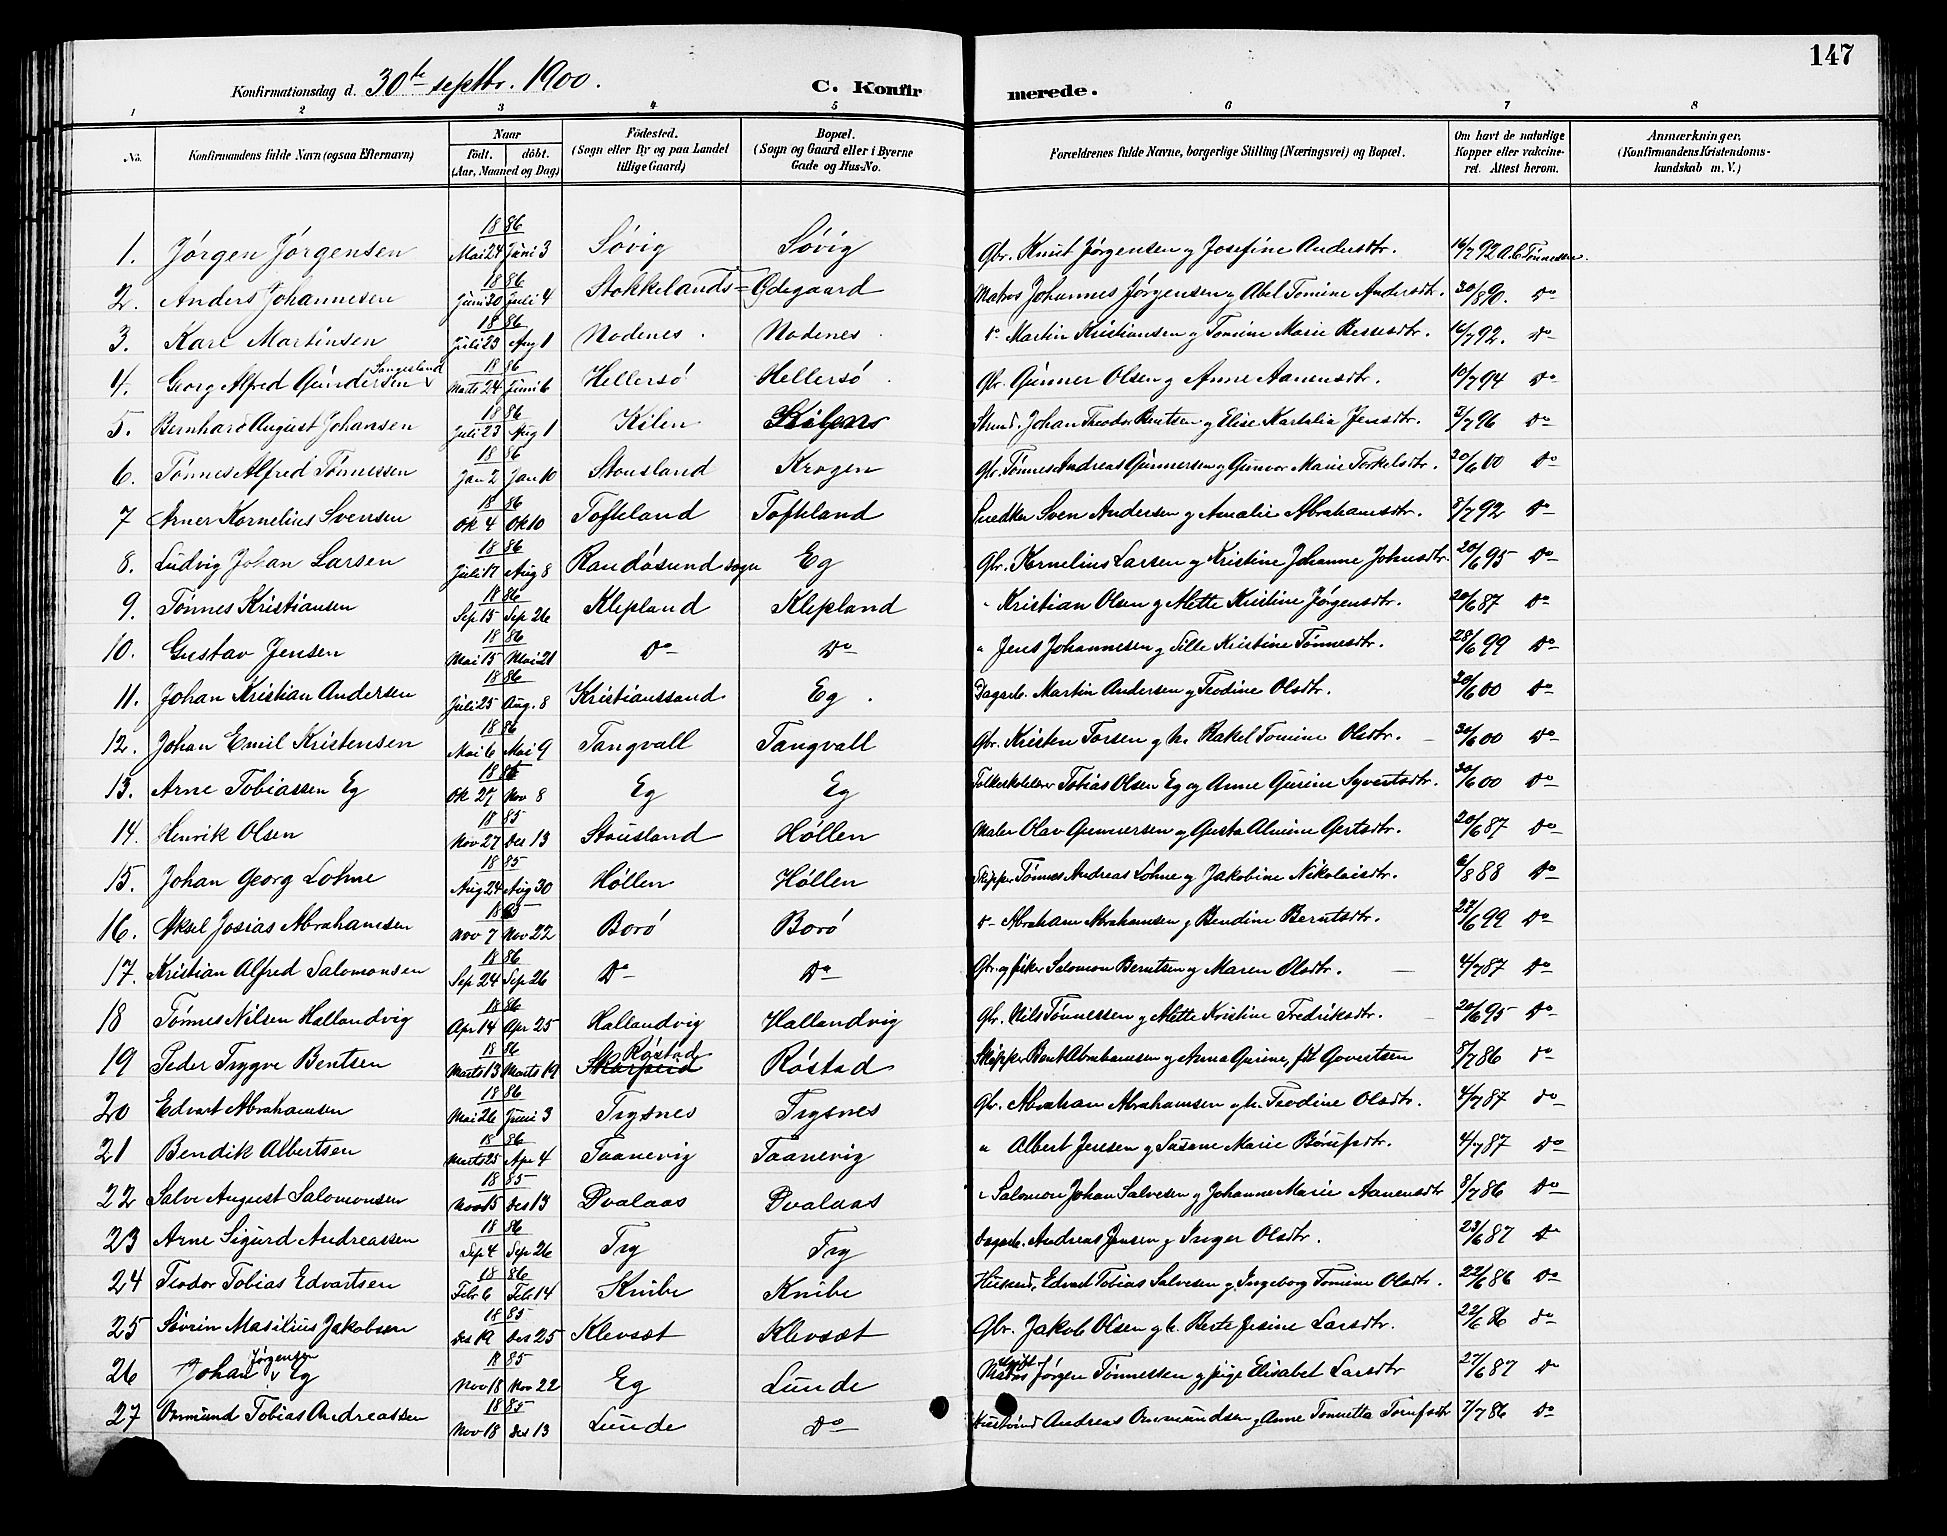 147
Konfirmationsdag d. 30te septbr. 1900. C. Konfirmerede.
1 2 3 4 5 6 7 8
No. Konfirmandens fulde Navn (ogsaa Efternavn) Naar født. døbt. (Aar, Maaned og Dag) Fødested. (Sogn eller By og paa Landet tillige Gaard) Bopæl. (Sogn og Gaard eller i Byerne Gade og Hus-No. Forældrenes fulde Navne, borgerlige Stilling (Næringsvei) og Bopæl. Om havt de naturlige Kopper eller vakcineret. Attest herom. Anmærkninger. (Konfirmandens Kristendomskundskab m. V.)
1. Jørgen Jørgensen 1886 Mai 24 Juni 3 Søvig Søvig Gbr. Knut Jørgensen og Josefine Andersdtr. 16/7 92 A. C. Tønnessen.
2. Anders Johannesen 1886 Juni 20 Juli 4 Stokkelands= Ødegaard Matros Johannes Jørgensen og Abel Tomine Andersdtr. 30/8 90. Do
3. Karl Martinsen 1886 Juli 23 Aug 1 Nodenes. Nodenes. Do Martin Kristiansen og Tomine Marie Bessesdtr. 16/7 92. Do
4. Georg Alfred Gundersen Sangesland 1886 Marts 24 Juni 6 Hellersø Hellersø. Gbr. Gunner Olsen og Anne Aanensdtr. 10/7 94 Do
5. Bernhard August Johansen 1886 Juli 23 Aug 1 Kilen Kilen Johan Theodor Berntsen og Elise Jensdtr. 2/7 96 Do
6. Tønnes Alfred Tønnessen 1886 Jan 2 Jan 10 Stousland Krogen Gbr. Tønnes Andreas Gunnersen og Gunvor Marie Torkelsdtr. 20/6 00 Do
7 Arner Kornelius Svensen 1886 Ok 4 Ok 10 Toftland Toftland Snedker Sven Andersen og Amalie Abrahamsdtr. 8/7 92 Do
8. Ludvig Johan Larsen 1886 Juli 17 Aug 8 Randøsund sogn Eg Gbr. Kornelius Larsen og Kristine Johanne Johnsdtr. 20/6 95 Do
9. Tønnes Kristiansen 1886 Sep 15 Sep 26 Klepland Klepland " Kristian Olsen og Mette Kristine Jørgensdtr. 20/6 87 Do
10. Gustav Jensen 1886 Mai 15 Mai 21 Do Do " Jens Johannesen og Sille Kristine Tønnesdtr. 28/6 99 Do
11. Johan Kristian Andersen 1886 Juli 25 Aug. 8 Kristianssand Eg. Dagarb. Martin Andersen og Teodine Olsdtr. 20/6 00 Do
12. Johan Emil Kristensen 1886 Mai 6 Mai 9 Tangvall Tangvall Gbr. Kristen Torsen og h. Rakel Tomine Olsdtr. 30/6 00 Do
13. Arne Tobiassen Eg Ok 27 Nov 8 Eg Eg Folkeskolelærer Tobias Olsen Eg og Anne Gurine Syvertsdtr. 30/6 00 Do
14. Henrik Olsen 1885 Nov 27 Des 13 Stousland Høllen Maler Olav Gunnersen og Gusta Almine Gertsdtr. 20/6 87 Do
15. Johan Georg Lohne 1885 Aug 24 Aug 30 Høllen Høllen Skipper Tønnes Andreas Lohne og Jakobine Nikolaisdtr. 6/8 88 Do
16. Aksel Josias Abrahamsen 1885 Nov 7 Nov 22 Borø Borø Do Abraham Abrahamsen og Bendine Berntsdtr. 28/6 99 Do
17. Kristian Alfred Salomonsen 1886 Sep 24 Sep 26 Do Do Gbr. og fisker Salomon Berntsen og Maren Olsdtr. 4/7 87 Do
18 Tønnes Nilsen Hallandvig 1886 Apr 14 Apr 25 Hallandvig Hallandvig Gbr. Nils Tønnessen og Mette Kristine Fredriksdtr. 20/6 95 Do
19 Peder Trygve Bentsen 1886 Marts 13 Marts 19 Røstad Røstad Skipper Bent Abrahamsen og Anna Gurine, født Govertsen 8/7 86 do
20 Edvart Abrahamsen 1886 Mai 26 Juni 3 Trysnes Trysnes Gbr. Abraham Abrahamsen og h. Teodine Olsdtr. 4/7 87 do
21 Bendik Albertsen 1886 Marts 25 Apr 4 Taanevig Taanevig " Albert Jensen og Susane Marie Børufsdtr. 4/7 87 Do
22 Salve August Salomonsen 1885 Nov 15 Des 13 Dvalaas Dvalaas " Salomon Johan Salvesen og Johanne Marie Aanensdtr 8/7 86 Do
23 Arne Sigurd Andreassen 1886 Sep 4 Sep 26 Try Try Dagarb. Andreas Jensen og Inger Olsdtr. 23/6 87 Do
24 Teodor Tobias Edvartsen 1886 Febr 6 Feb 14 Knibe Knibe Husmd. Edvart Tobias Salvesen og Ingeborg Tomine Olsdtr. 22/6 86 Do
25 Søvrin Masilius Jakobsen 1885 Des 19 Des 25 Klevsæt Klevsæt Gbr. Jakob Olsen og h. Berte Jesine Larsdtr. 22/6 86 do
26 Johan Jørgensen Eg 1885 Nov 18 Nov 22 Eg Lunde Matros Jørgen Tønnessen og pige Elisabet Larsdtr 27/6 87 Do
27 Omund Tobias Andreassen 1885 Nov 18 Des 13 Lunde Do Andreas Ommundsen og Anne Tonnetta Tomfsdtr 7/7 86 Do